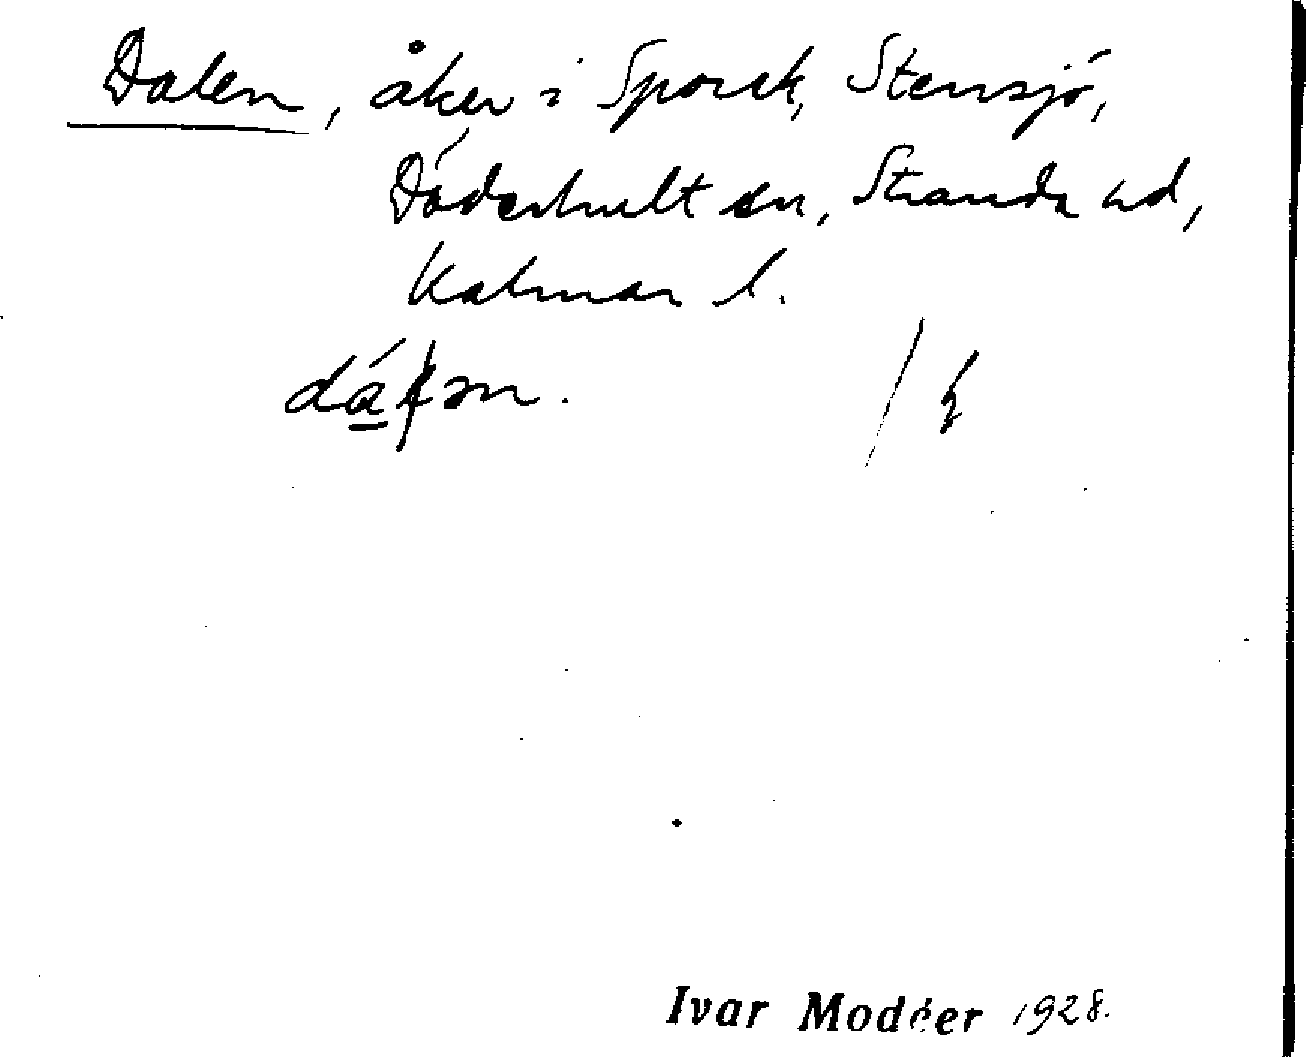 Dalen, åker i Sporsk, Stensjö,
Döderhult sn, Stranda hd,
Kalmar l.
Ivar Modéer 1928.